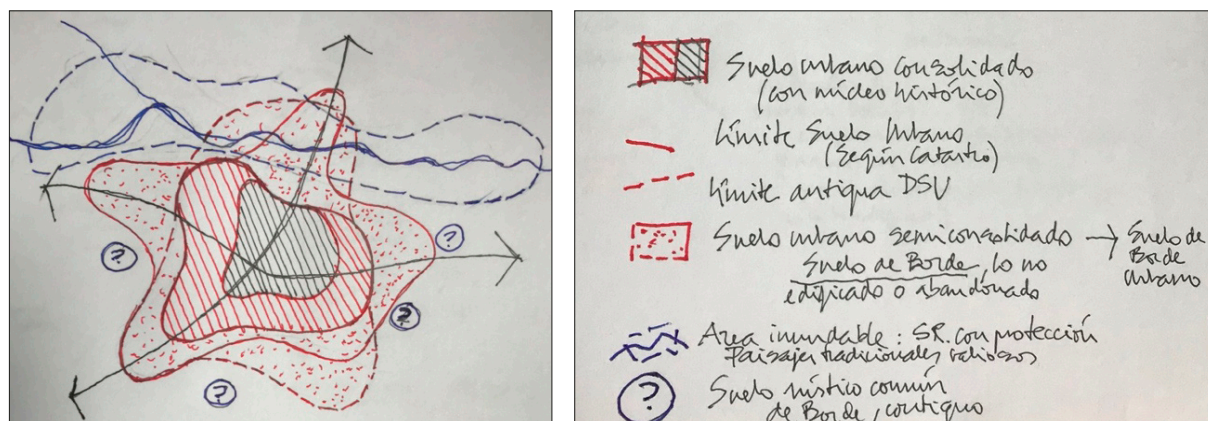 ?
?
?
?
Suelo urbano consolidado
(con núcleo histórico)
Límite Suelo Urbano
(según Catastro)
Límite antigua DSU
Suelo urbano semiconsolidado → Suelo de
Borde
urbano
Suelo de Borde, lo no
edificado o abandonado
Area inundable: SR. con protección
Paisajes tradicionales valiosos
? Suelo rústico común
de Borde, contiguo